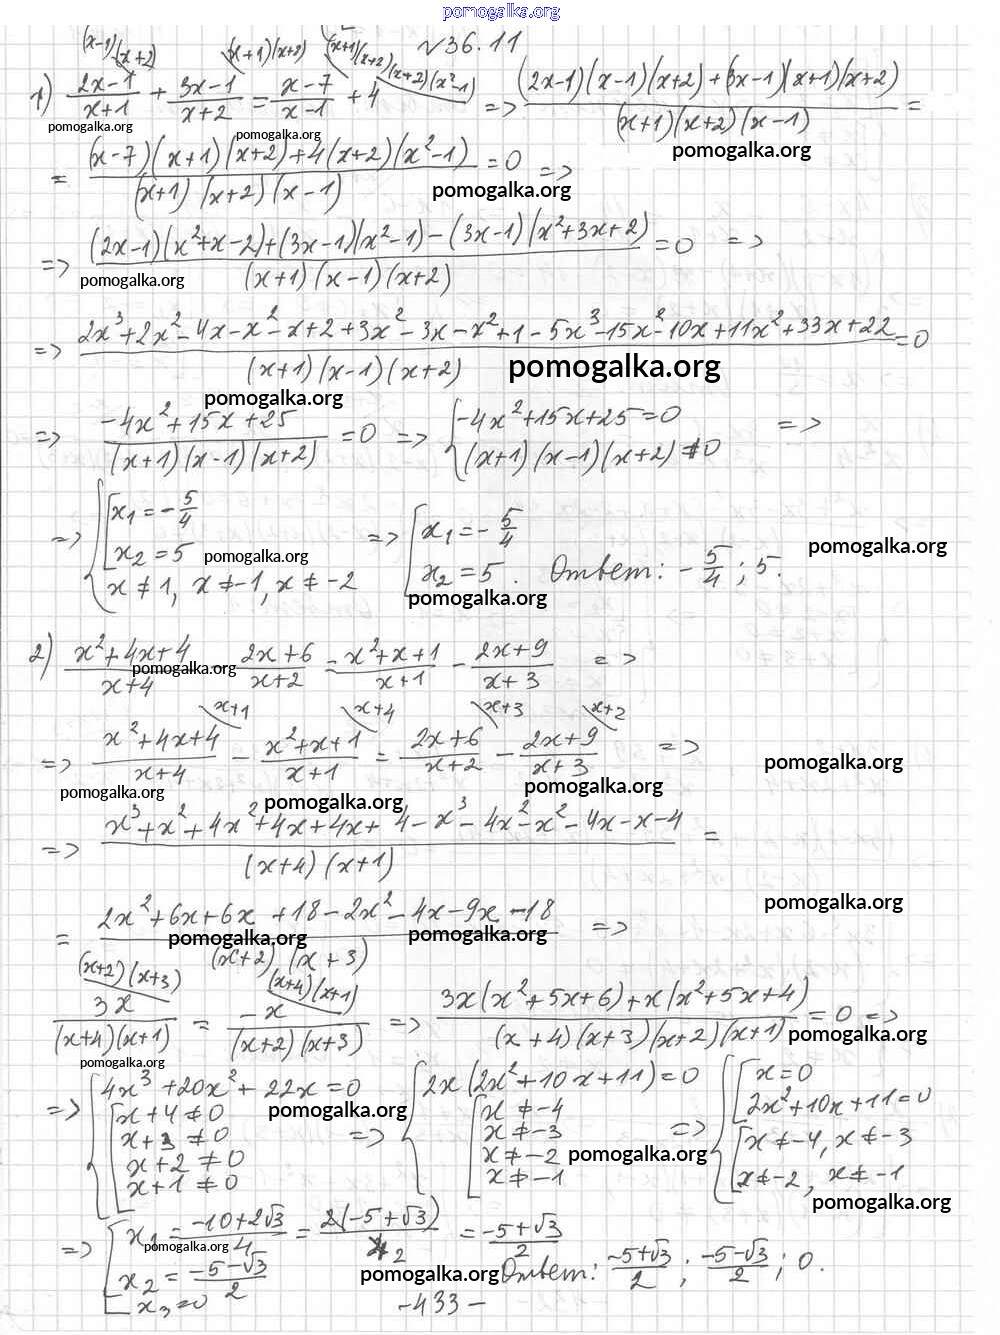 pomogalka.org
№36.11
(x-1)(x+2) (x+1)(x+2) (x+1)(x+2) (x+2)(x²-1)
1) (2x-1)/(x+1) + (3x-1)/(x+2) = (x-7)/(x-1) + 4 => ((2x-1)(x-1)(x+2)+(3x-1)(x+1)(x+2))/((x+1)(x+2)(x-1)) =
pomogalka.org pomogalka.org pomogalka.org
= ((x-7)(x+1)(x+2)+4(x+2)(x²-1))/((x+1)(x+2)(x-1)) = 0 =>
pomogalka.org
=> ((2x-1)(x²+x-2)+(3x-1)(x²-1)-(3x-1)(x²+3x+2))/((x+1)(x-1)(x+2)) = 0 =>
pomogalka.org
=> (2x³+2x²-4x-x²-x+2+3x²-3x-x²+1-5x³-15x²-10x+11x²+33x+22)/((x+1)(x-1)(x+2)) = 0
pomogalka.org pomogalka.org
=> (-4x²+15x+25)/((x+1)(x-1)(x+2)) = 0 => { -4x²+15x+25=0 ; (x+1)(x-1)(x+2)≠0 =>
=> { [ x₁=-5/4 ; x₂=5 ; x≠1, x≠-1, x≠-2 => [ x₁=-5/4 ; x₂=5. Ответ: -5/4; 5.
pomogalka.org pomogalka.org pomogalka.org
2) (x²+4x+4)/(x+4) - (2x+6)/(x+2) = (x²+x+1)/(x+1) - (2x+9)/(x+3) =>
pomogalka.org
x+1 x+4 x+3 x+2
=> (x²+4x+4)/(x+4) - (x²+x+1)/(x+1) = (2x+6)/(x+2) - (2x+9)/(x+3) =>
pomogalka.org pomogalka.org pomogalka.org pomogalka.org
=> (x³+x²+4x²+4x+4x+4-x³-4x²-x²-4x-x-4)/((x+4)(x+1)) =
= (2x²+6x+6x+18-2x²-4x-9x-18)/((x+2)(x+3)) =>
pomogalka.org pomogalka.org pomogalka.org
(x+2)(x+3) (x+4)(x+1)
3x/((x+4)(x+1)) = -x/((x+2)(x+3)) => (3x(x²+5x+6)+x(x²+5x+4))/((x+4)(x+3)(x+2)(x+1)) = 0 =>
pomogalka.org pomogalka.org
=> { 4x³+20x²+22x=0 ; [ x+4≠0 ; x+3≠0 ; x+2≠0 ; x+1≠0 => { 2x(2x²+10x+11)=0 ; [ x≠-4 ; x≠-3 ; x≠-2 ; x≠-1 => { [ x=0 ; 2x²+10x+11=0 ; [ x≠-4, x≠-3 ; x≠-2, x≠-1
pomogalka.org pomogalka.org pomogalka.org
=> [ x₁=(-10+2√3)/4 = 2(-5+√3)/(4 2) = (-5+√3)/2 ; x₂=(-5-√3)/2 ; x₃=0 Ответ: (-5+√3)/2; (-5-√3)/2; 0.
pomogalka.org pomogalka.org
-433-